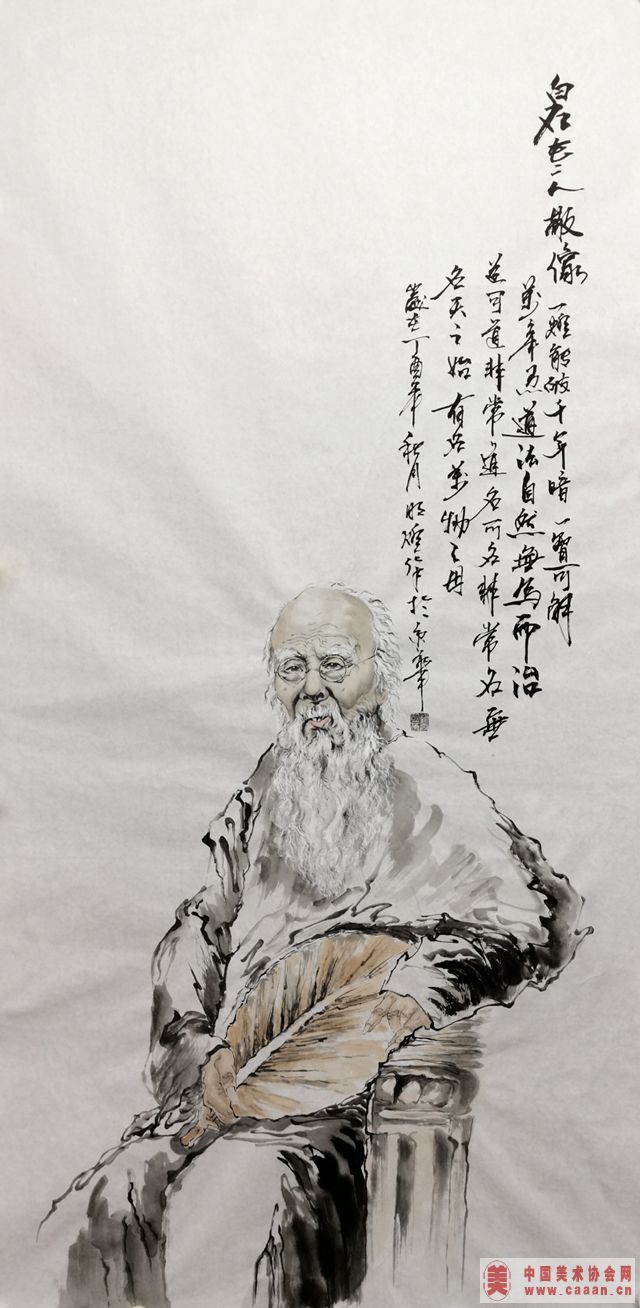 白石老人敬像 一燈能破千年暗一智可解
萬年愚道法自然無為而治
道可道非常道名可名非常名無
名天之始有名萬物之母
歲在丁酉年秋月明燈作於京華
美 中国美术协会网
www.caaan.cn